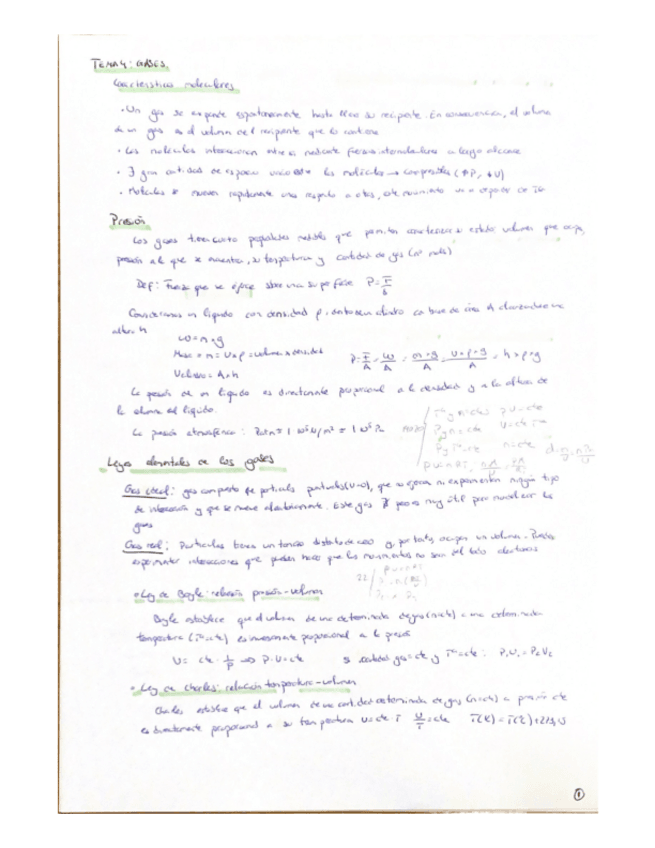 TEMA 4: GASES
Característica moleculares
• Un gas se expande espontáneamente hasta llenar su recipiente. En consecuencia, el volumen
de un gas es el volumen del recipiente que lo contiene
• Las moléculas interaccionan entre sí mediante fuerzas intermoleculares a largo alcance
• ∃ gran cantidad de espacio vacío entre las moléculas → compresibles (↑P, ↓V)
• Moléculas se mueven rápidamente unas respecto a otras, este movimiento
Presión
Los gases tienen cuatro propiedades medibles que permiten caracterizar su estado: volumen que ocupa,
presión a la que se encuentra, su temperatura y cantidad de gas (nº moles)
Def: Fuerza que se ejerce sobre una superficie P = F/S
Consideramos un líquido con densidad ρ, dentro de un cilindro con base de área A alcanzando una
altura h
W = m · g
Masa = m = V × ρ = volumen × densidad
Vcilindro = A × h
P = F/A = W/A = m × g/A = V × ρ × g/A = h × ρ × g
La presión de un líquido es directamente proporcional a la densidad y a la altura de
la columna del líquido.
La presión atmosférica: Patm = 1 10⁵ N/m² = 1 10⁵ Pa
Leyes elementales de los gases
Gas ideal: gas compuesto de partículas puntuales (V=0), que se ejercen ni experimentan ningún tipo
de interacción y que se mueve aleatoriamente. Este gas ∄ pero es muy útil para modelar los
gases
Gas real: Partículas tienen un tamaño distinto de cero y, por tanto, ocupan un volumen. Pueden
experimentar interacciones que pueden hacer que los movimientos no sean del todo aleatorios
• Ley de Boyle: relación presión-volumen
Boyle establece que el volumen de una determinada de gas (n=cte) a una determinada
temperatura (Tª=cte) es inversamente proporcional a la presión
V = cte · 1/P ⟹ P · V = cte si cantidad gas = cte y Tª = cte : P₁V₁ = P₂V₂
• Ley de Charles: relación temperatura-volumen
Charles establece que el volumen de una cantidad determinada de gas (n=cte) a presión cte
es directamente proporcional a su temperatura V = cte · T V/T = cte T(K) = T(ºC) + 273,15
1